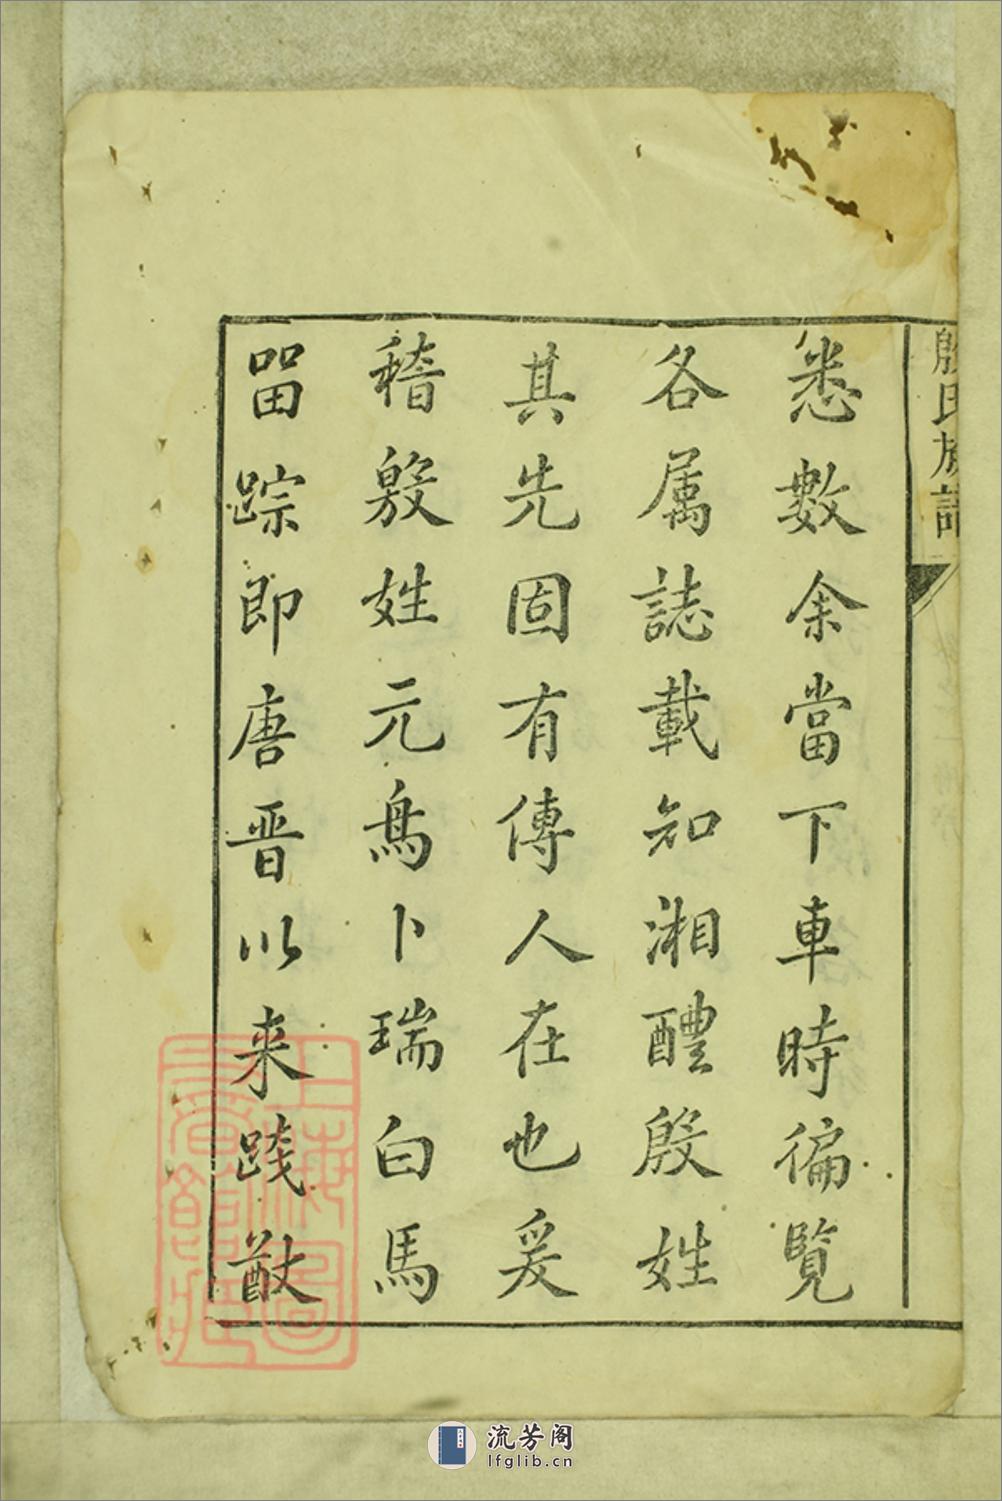 殷氏族譜
悉數余當下車時徧覽
各属誌載知湘醴殷姓
其先固有傳人在也爰
稽殷姓元鳥卜瑞白馬
畱踪即唐晋以来踐猷
上海圖書館藏
流芳阁
lfglib.cn